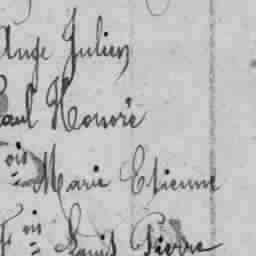 Ange Julien
Paul Honoré
ois Marie Etienne
Fois Louis Pierre